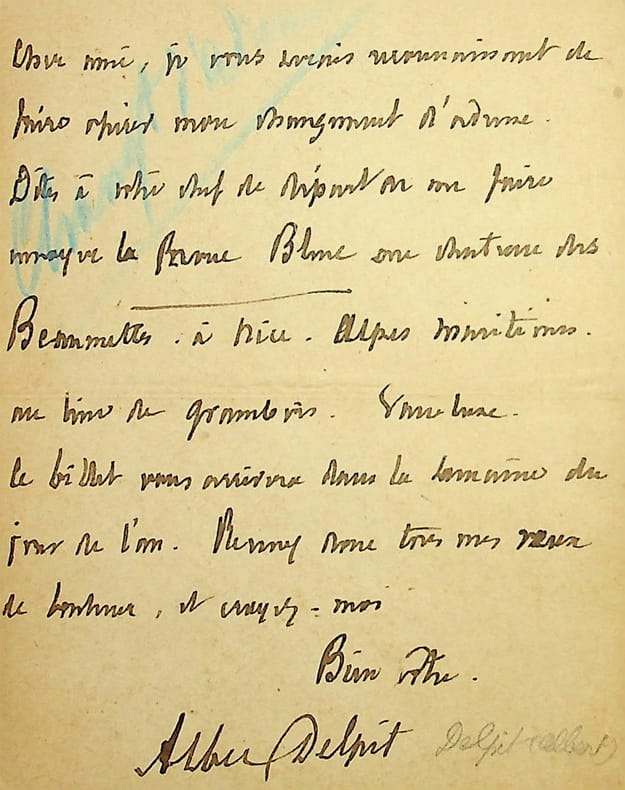 Cher ami, je vous serais reconnaissant de
faire opérer mon changement d'adresse.
Dites à votre chef de départ de me faire
envoyer la Revue Bleue au chateau des
Beaumettes. à Nice. Alpes maritimes.
au lieu de Grambois. Vaucluse.
Le billet vous arrivera dans la semaine du
jour de l'an. Recevez donc tous mes vœux
de bonheur, et croyez-moi
Bien vôtre.
Albert Delpit
Delpit (Albert)